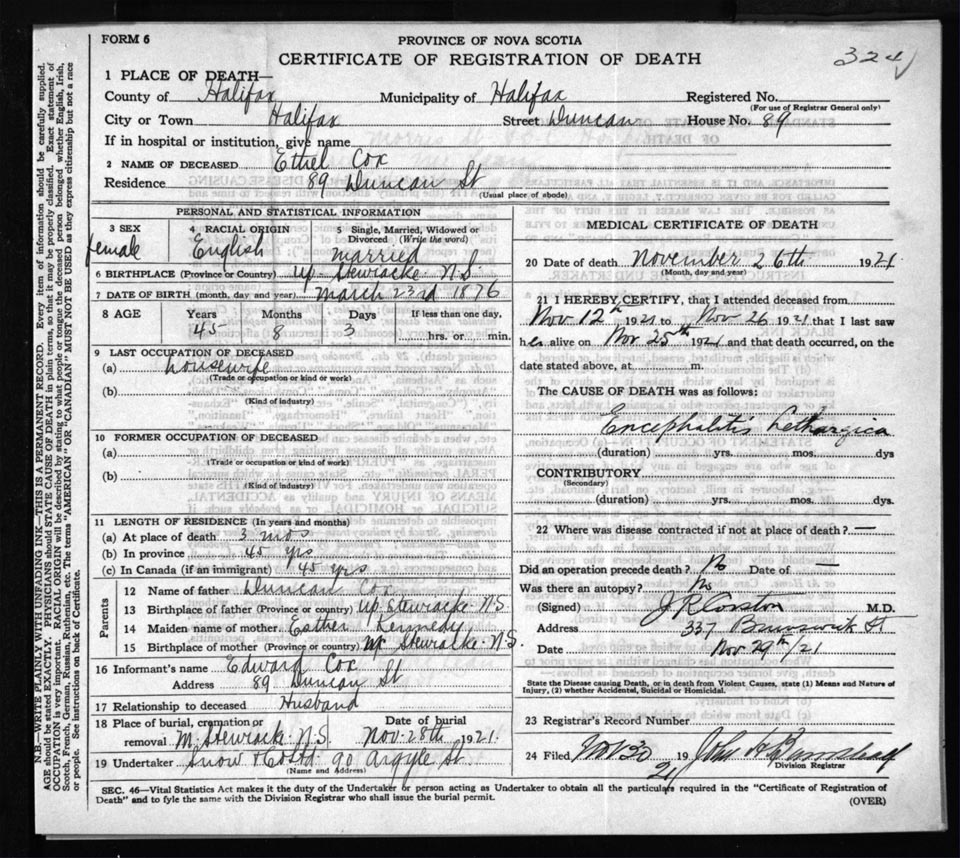 FORM 6
PROVINCE OF NOVA SCOTIA
CERTIFICATE OF REGISTRATION OF DEATH
324
1 PLACE OF DEATH—
County of Halifax Municipality of Halifax Registered No.
(For use of Registrar General only)
City or Town Halifax Street Duncan House No. 89
If in hospital or institution, give name
2 NAME OF DECEASED Ethel Cox
Residence 89 Duncan St
(Usual place of abode)
PERSONAL AND STATISTICAL INFORMATION
3 SEX female
4 RACIAL ORIGIN English
5 Single, Married, Widowed or Divorced (Write the word) married
6 BIRTHPLACE (Province or Country) Up. Stewiacke. N.S.
7 DATE OF BIRTH (month, day and year) March 23rd 1876
8 AGE Years 45 Months 8 Days 3 If less than one day, hrs. or min.
9 LAST OCCUPATION OF DECEASED
(a) housewife
(Trade or occupation or kind or work)
(b)
(Kind of industry)
10 FORMER OCCUPATION OF DECEASED
(a)
(Trade or occupation or kind or work)
(b)
(Kind of industry)
11 LENGTH OF RESIDENCE (In years and months)
(a) At place of death 3 mos
(b) In province 45 yrs
(c) In Canada (if an immigrant) 45 yrs
Parents
12 Name of father Duncan Cox
13 Birthplace of father (Province or country) Up. Stewiacke. N.S.
14 Maiden name of mother Esther Kennedy
15 Birthplace of mother (Province or country) Stewiacke. N.S.
16 Informant's name Edward Cox
Address 89 Duncan St
17 Relationship to deceased Husband
18 Place of burial, cremation or removal M. Stewiack. N.S. Date of burial Nov. 28th 1921.
19 Undertaker Snow & Co Ltd. 90 Argyle St.
(Name and Address)
MEDICAL CERTIFICATE OF DEATH
20 Date of death November 26th 1921
(Month, day and year)
21 I HEREBY CERTIFY, that I attended deceased from
Nov 12th 1921 to Nov 26 1921 that I last saw
her alive on Nov 25th 1921 and that death occurred, on the
date stated above, at m.
The CAUSE OF DEATH was as follows:
Encephalitis Lethargica
(duration) yrs. mos. dys
CONTRIBUTORY
(Secondary)
(duration) yrs. mos. dys.
22 Where was disease contracted if not at place of death? —
Did an operation precede death? No Date of —
Was there an autopsy? No
(Signed) J R Corston M.D.
Address 337 Brunswick St
Date Nov 29th/21
State the Disease causing Death, or in death from Violent Causes, state (1) Means and Nature of
Injury, (2) whether Accidental, Suicidal or Homicidal.
23 Registrar's Record Number
24 Filed Nov 30 1921 John H
Division Registrar
SEC. 46—Vital Statistics Act makes it the duty of the Undertaker or person acting as Undertaker to obtain all the particulars required in the "Certificate of Registration of
Death" and to fyle the same with the Division Registrar who shall issue the burial permit.
(OVER)
N.B.—WRITE PLAINLY WITH UNFADING INK—THIS IS A PERMANENT RECORD. Every item of information should be carefully supplied.
AGE should be stated EXACTLY. PHYSICIANS should STATE CAUSE OF DEATH in plain terms, so that it may be properly classified. Exact statement of
OCCUPATION is very important. RACIAL ORIGIN will be described by stating to what people or tongue the deceased person belonged whether English, Irish,
Scotch, French, German, Russian, Ruthenian, etc. The terms "AMERICAN" OR "CANADIAN" MUST NOT BE USED as they express citizenship but not a race
or people. See instructions on back of Certificate.